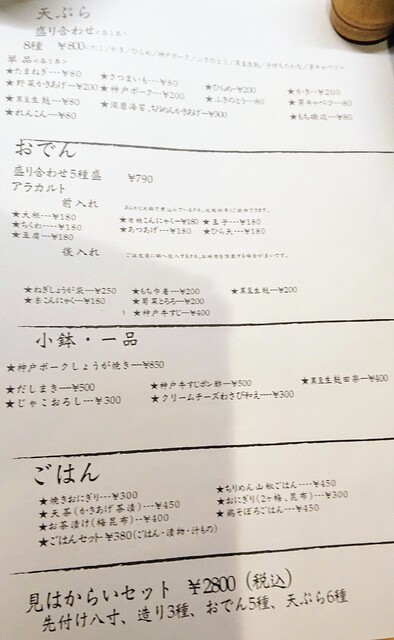 天ぷら
盛り合わせ<各1本>
8種 ¥800<たこ/かき/ひらめ/神戸ポーク/ふきのとう/黒豆生麩/子持ちたかな/芽キャベツ>
単品<各1本>
★たまねぎ---¥80 ★さつまいも---¥80 ★ひらめ---¥200 ★かき---¥200
★野菜かきあげ---¥200 ★神戸ポーク---¥200 ★ふきのとう---80 ★芽キャベツ---80
★黒豆生麩---¥80 ★須磨海苔、ちりめんかきあげ---¥300
★れんこん---¥80 ★もち磯辺---¥80
おでん
盛り合わせ5種盛 ¥790
アラカルト
前入れ
★大根---¥180 ★有機こんにゃく---¥180 ★玉子---¥180
★ちくわ---¥180 ★あつあげ---¥180 ★ひら天---¥180
★豆腐---¥180
後入れ
★ねぎしょうが袋---¥250 ★もち巾着---¥200 ★黒豆生麩---¥200
★糸こんにゃく---¥180 ★菊菜とろろ---¥200
★神戸牛すじ---¥400
小鉢・一品
★神戸ポークしょうが焼き---¥850
★だしまき---¥500 ★神戸牛すじポン酢---¥500 ★黒豆生麩田楽---¥400
★じゃこおろし---¥300 ★クリームチーズわさび和え---¥300
ごはん
★焼きおにぎり---¥300 ★ちりめん山椒ごはん----¥450
★天茶(かきあげ茶漬)---¥450 ★おにぎり(2ヶ梅、昆布)---¥300
★お茶漬け(梅昆布)---¥400 ★鶏そぼろごはん---¥450
★ごはんセット---¥380(ごはん・漬物・汁もの)
見はからいセット ¥2800(税込)
先付け八寸、造り3種、おでん5種、天ぷら6種